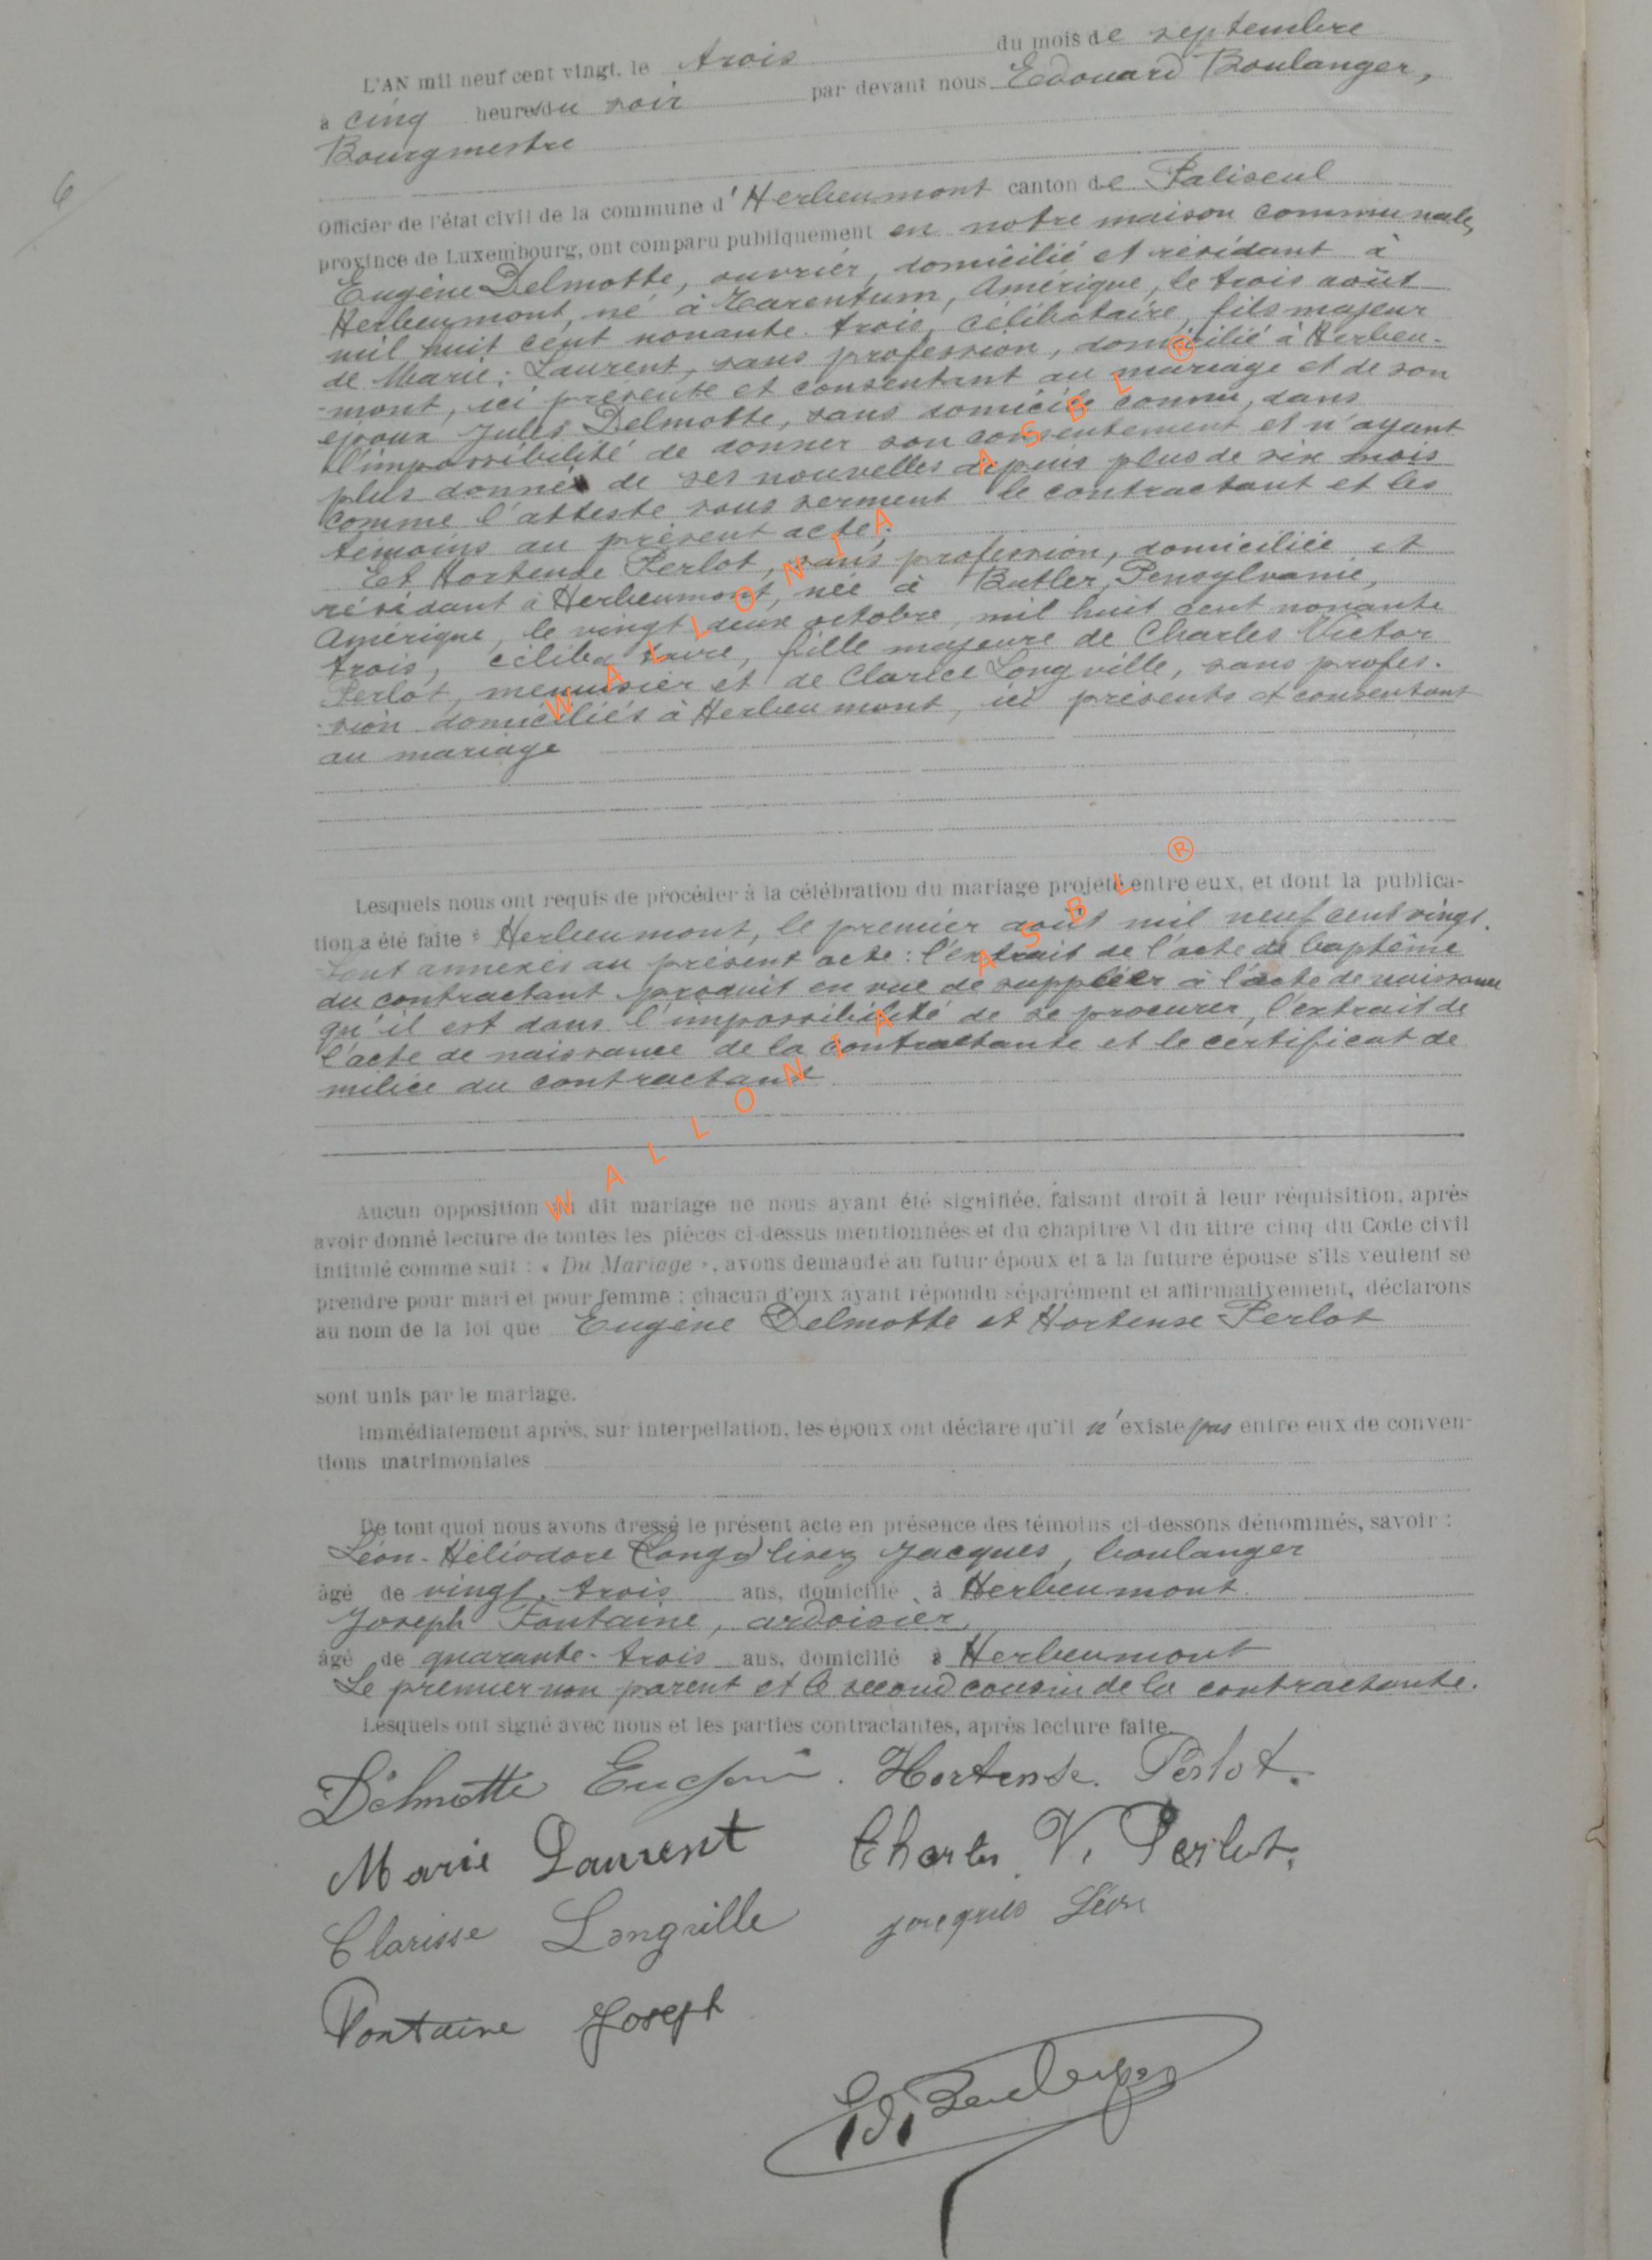 6
L'AN mil neuf cent vingt, le trois du mois de septembre
à cinq heures du soir par devant nous Edouard Boulanger,
Bourgmestre
Officier de l'état civil de la commune d'Herbeumont canton de Paliseul
province de Luxembourg, ont comparu publiquement en notre maison communale,
Eugène Delmotte, ouvrier, domicilié et résidant à
Herbeumont, né à Tarentum, Amérique, le trois août
mil huit cent nonante-trois, célibataire, fils majeur
de Marie Laurent, sans profession, domicilié à Herbeu-
mont, ici présente et consentant au mariage et de son
époux Jules Delmotte, sans domicile connu, dans
l'impossibilité de donner son consentement et n'ayant
plus donné de ses nouvelles depuis plus de six mois
comme l'atteste sous serment le contractant et les
témoins au présent acte;
Et Hortense Perlot, sans profession, domiciliée et
résidant à Herbeumont, née à Butler, Pensylvanie,
Amérique, le vingt-deux octobre, mil huit cent nonante
trois, célibataire, fille majeure de Charles Victor
Perlot, menuisier et de Clarice Longville, sans profes-
sion domiciliés à Herbeumont, ici présents et consentant
au mariage
Lesquels nous ont requis de procéder à la célébration du mariage projeté entre eux, et dont la publica-
tion a été faite à Herbeumont, le premier août mil neuf cent vingt.
Sont annexés au présent acte : l'extrait de l'acte de baptême
du contractant produit en vue de suppléer à l'acte de naissance
qu'il est dans l'impossibilité de se procurer, l'extrait de
l'acte de naissance de la contractante et le certificat de
milice du contractant
Aucun opposition au dit mariage ne nous ayant été signifiée, faisant droit à leur réquisition, après
avoir donné lecture de toutes les pièces ci-dessus mentionnées et du chapitre VI du titre cinq du Code civil
intitulé comme suit : « Du Mariage », avons demandé au futur époux et à la future épouse s'ils veulent se
prendre pour mari et pour femme : chacun d'eux ayant répondu séparément et affirmativement, déclarons
au nom de la loi que Eugène Delmotte et Hortense Perlot
sont unis par le mariage.
Immédiatement après, sur interpellation, les époux ont déclaré qu'il n'existe pas entre eux de conven-
tions matrimoniales
De tout quoi nous avons dressé le présent acte en présence des témoins ci-dessons dénommés, savoir :
Léon-Héliodore (Long) lisez Jacques, boulanger
âgé de vingt-trois ans, domicilié à Herbeumont
Joseph Fontaine, ardoisier,
âgé de quarante-trois ans, domicilié à Herbeumont
Le premier non parent et le second cousin de la contractante.
Lesquels ont signé avec nous et les parties contractantes, après lecture faite.
Delmotte Eugène. Hortense. Perlot.
Marie Laurent Charles V. Perlot.
Clarisse Longville Jacques Léon
Fontaine Joseph
Ed. Boulanger
WALLONIA ASBL ®
WALLONIA ASBL ®